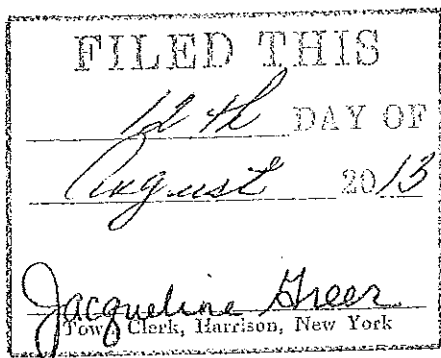 FILED THIS
12th DAY OF
August 2013
Jacqueline Greer
Town Clerk, Harrison, New York